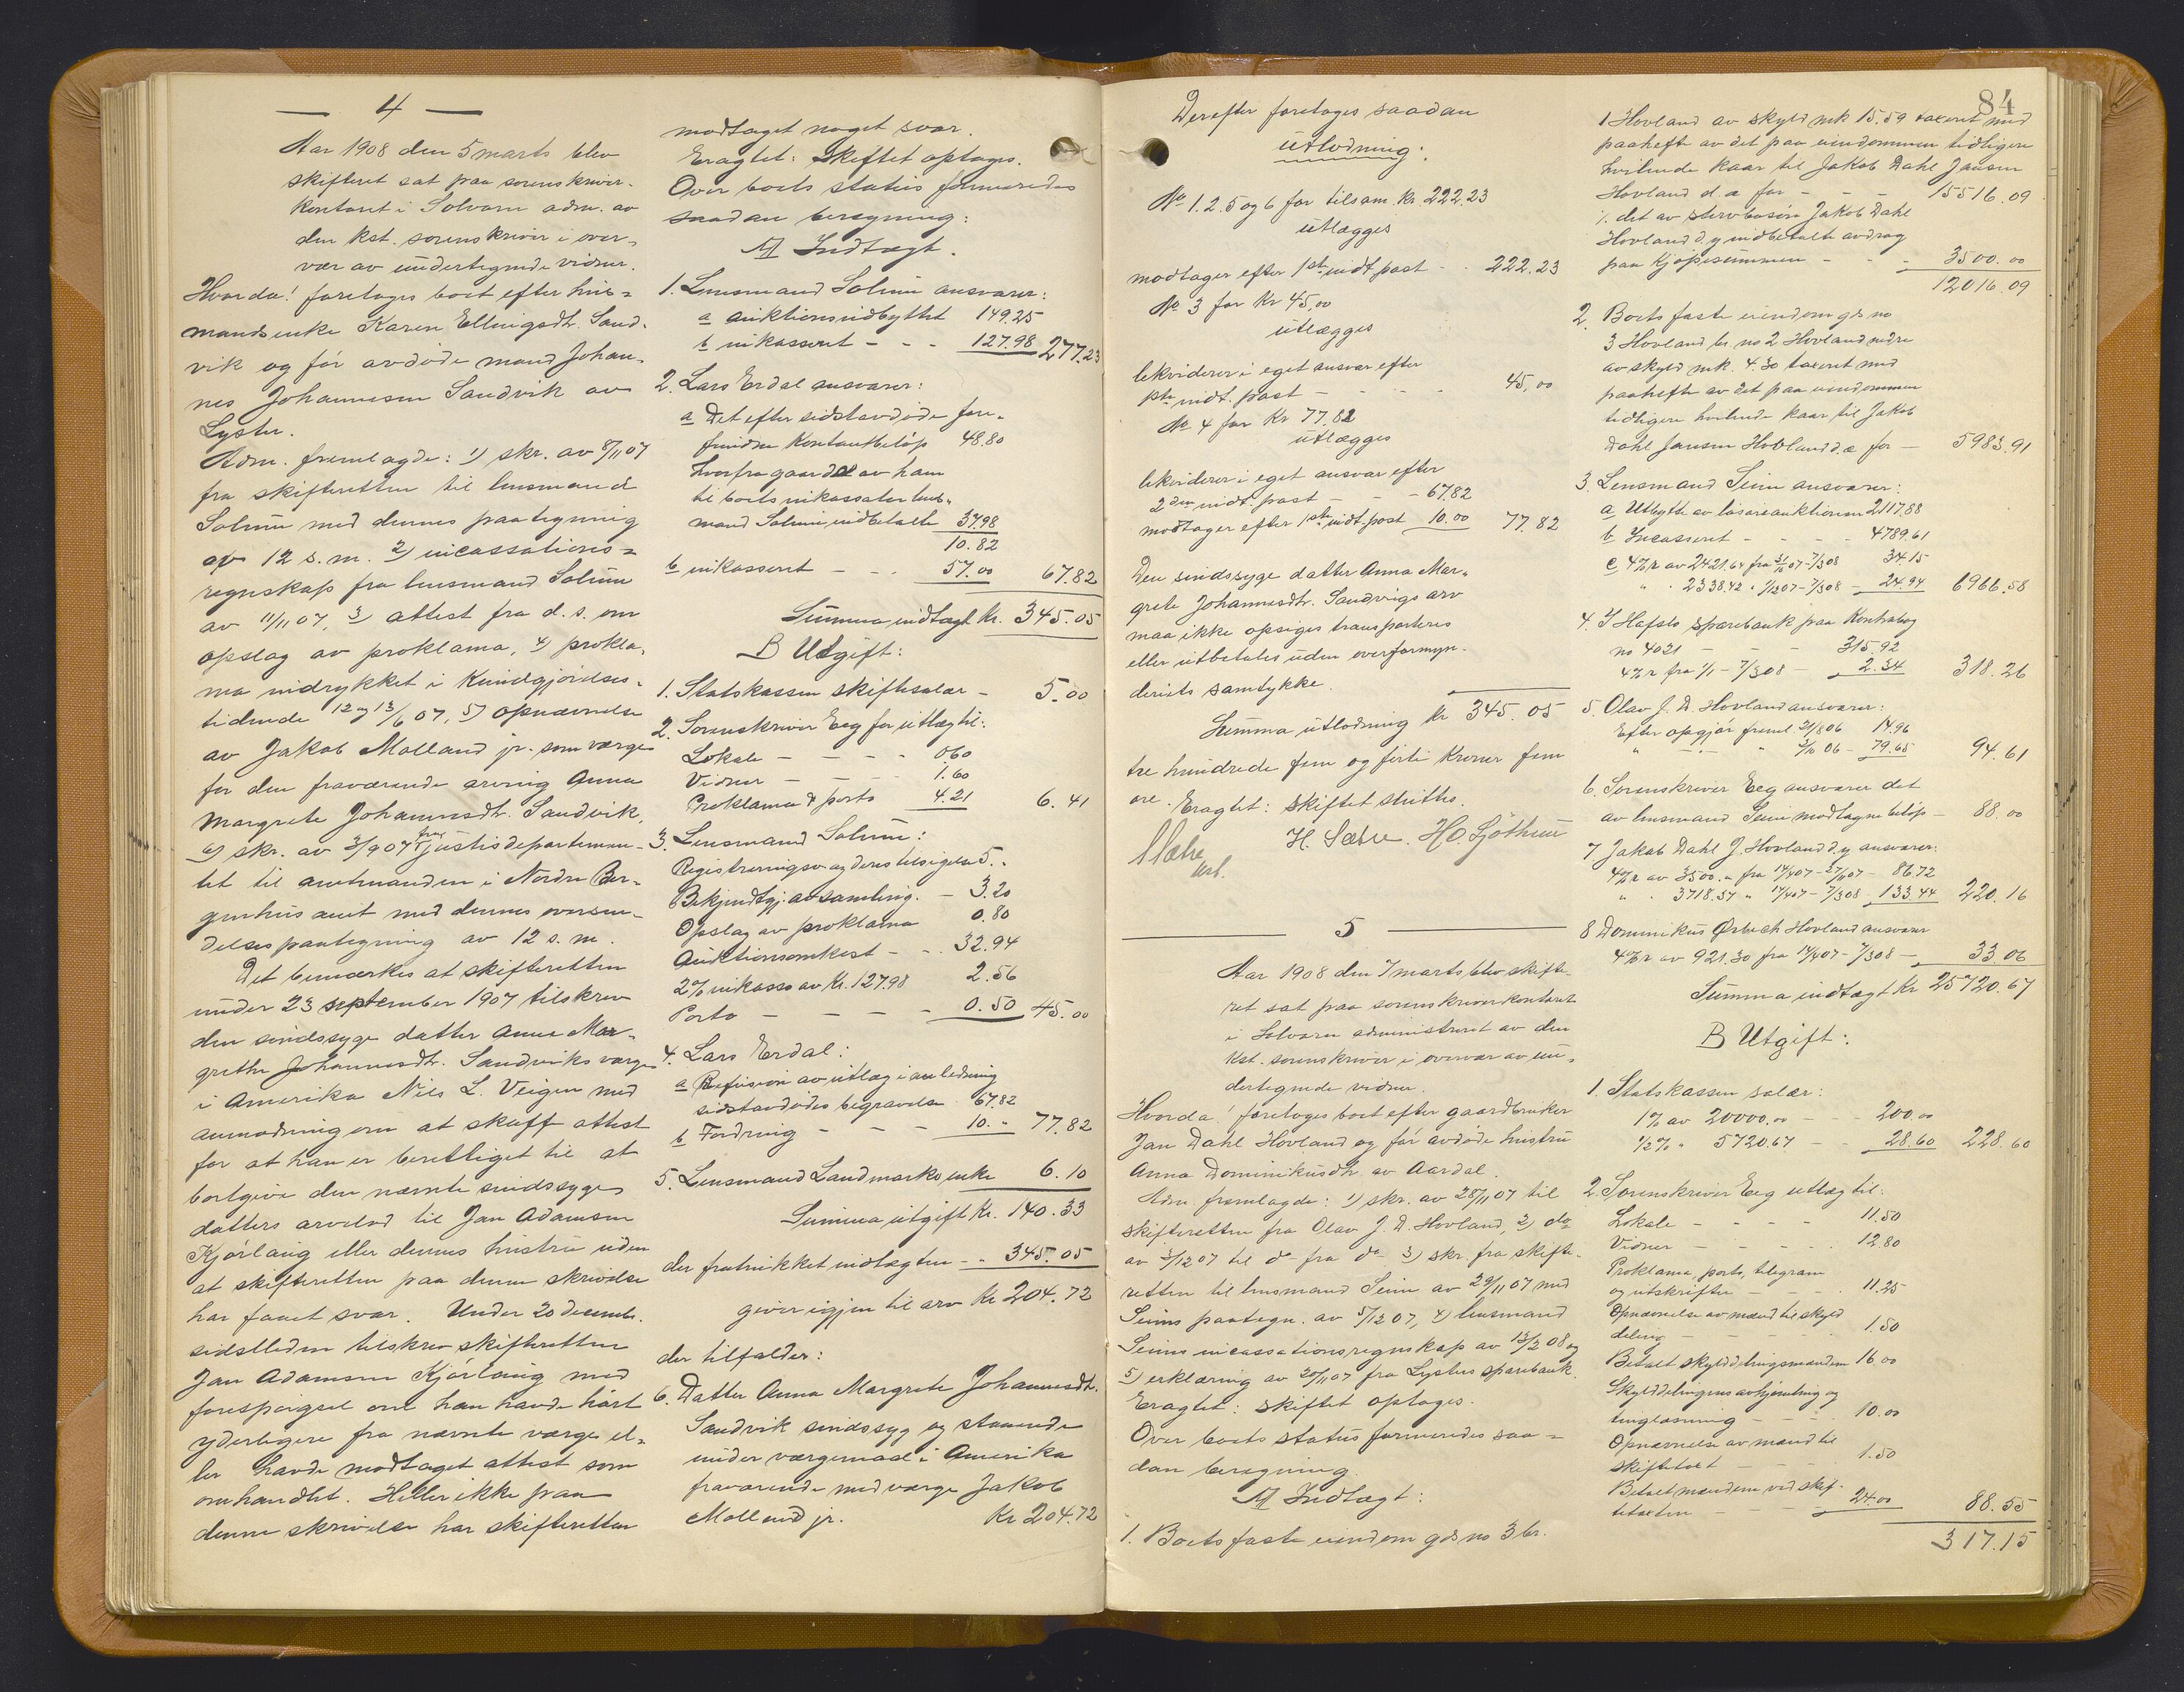 — 4 —
Aar 1908 den 5 marts blev
skifteret sat paa sorenskriver-
kontoret i Solvorn adm. av
den kst. sorenskriver i over-
vær av undertegnede vidner.
Hvorda! foretoges boet efter hus-
mandsenke Karen Ellingsdtr. Sand-
vik og før avdøde mand Johan-
nes Johannesen Sandvik av
Lyster.
Adm. fremlagde: 1) skr. av 8/11 07
fra skifteretten til lensmand
Solum med dennes paategning
av 12 s.m. 2) incassations-
regnskap fra lensmand Solum
av 11/11 07, 3) attest fra d. s. om
opslag av proklama, 4) prokla-
ma indrykket i Kundgjørelses-
tidende 12 og 13/6 07, 5) opnævnelse
av Jakob Molland jr. som værge
for den fraværende arving Anna
Margrete Johannesdtr. Sandvik,
6) skr. av 3/9 07 fra justisdepartemen-
tet til amtmanden i Nordre Ber-
genhus amt med dennes oversen-
delsespaategning av 12 s.m.
Det bemærkes at skifteretten
under 23 september 1907 tilskrev
den sindssyge datter Anna Mar-
grethe Johannesdtr. Sandviks værge
i Amerika Nils L. Veigen med
anmodning om at skaffe attest
for at han er berettiget til at
bortgive den nævnte sindssyge
datters arvelod til Jan Adamsen
Kjørlaug eller dennes hustru uden
at skifteretten paa denne skrivelse
har faaet svar. Under 20 decembr.
sidstleden tilskrev skifteretten
Jan Adamsen Kjørlaug med
forespørgsel om han havde hørt
yderligere fra nævnte værge el-
ler havde modtaget attest som
omhandlet. Heller ikke paa
denne skrivelse har skifteretten
modtaget noget svar.
Eragtet: Skiftet optages.
Over boets status formeredes
saadan beregning:
A Indtægt.
1. Lensmand Solum ansvarer:
a auktionsudbyttet 149.25
b inkasseret - - - 127.98 277.23
2. Lars Erdal ansvarer:
a Det efter sidstavdøde fore-
fundne Kontantbeløp 48.80
hvorfra gaar det av ham
til boets inkassator lens-
mand Solum indbetalte 37.98
10.82
b inkasseret - - - 57.00 67.82
Summa indtægt Kr. 345.05
B Utgift:
1. Statskassen skiftesalær - 5.00
2. Sorenskriver Eeg for utlæg til:
Lokale - - - - 0.60
Vidner - - - - 1.60
Proklama & porto 4.21 6.41
3. Lensmand Solum:
Registreringsv. og deres tilsigelse 5..
Bekjendtgj. av samling. - 3.20
Opslag av proklama 0.80
Auktionsomkost - - 32.94
2% inkasso av Kr. 127.98 2.56
Porto - - - - 0.50 45.00
4. Lars Erdal:
a Refusion av utlæg i anledning
sidstavdødes begravelse 67.82
b Fordring - - - 10. „ 77.82
5. Lensmand Landmarks enke 6.10
Summa utgift Kr. 140.33
der fratrukket indtægten - „ 345.05
giver igjen til arv Kr 204.72
der tilfalder:
6. Datter Anna Margrete Johannesdtr.
Sandvik sindssyg og staaende
under værgemaal i Amerika
fraværende med værge Jakob
Molland jr. Kr 204.72
Derefter foretoges saadan
utlodning:
No 1. 2. 5 og 6 for tilsam. Kr 222.23
utlægges
modtager efter 1ste indt. post - - 222.23
No 3 for Kr 45,00
utlægges
likviderer i eget ansvar efter
1ste indt. post - - - - 45,00
No 4 for Kr 77.82
utlægges
likviderer i eget ansvar efter
2den indt. post - - - 67.82
modtager efter 1ste indt. post 10.00 77.82
Den sindssyge datter Anna Mar-
grete Johannesdtr. Sandvigs arv
maa ikke opsiges transporteres
eller utbetales uden overformyn-
deriets samtykke.
Summa utlodning Kr 345.05
tre hundrede fem og førti Kroner fem
øre. Eragtet: Skiftet sluttes.
H. Sætre. H.O. Gjøthun
kst.
5
Aar 1908 den 7 marts blev skifte-
ret sat paa sorenskriverkontoret
i Solvorn administreret av den
Kst. sorenskriver i overvær av un-
dertegnede vidner.
Hvorda! foretoges boet efter gaardbruker
Jan Dahl Hovland og før avdøde hustru
Anna Dominikusdtr. av Aardal.
Adm fremlagde: 1) skr. av 28/11 07 til
skifteretten fra Olav J. D. Hovland, 2) do
av 3/12 07 til do fra do 3) skr. fra skifte-
retten til lensmand Seim av 29/11 07 med
Seims paategn. av 5/12 07, 4) lensmand
Seims incassationsregnskap av 13/2 08 og
5) erklæring av 20/11 07 fra Lysters sparebank.
Eragtet: skiftet optages.
Over boets status formeredes saa-
dan beregning.
A Indtægt:
1. Boets faste eiendom gds no 3 br.
84
1 Hovland av skyld mk 15.59 taxeret med
paahefte av det paa eiendommen tidligere
hvilende kaar til Jakob Dahl Jansen
Hovland d. æ for - - - 15516.09
÷ det av stervbosøn Jakob Dahl
Hovland d. y indbetalte avdrag
paa Kjøpesummen - - - 3500.00
12016.09
2. Boets faste eiendom gds no
3 Hovland br. no 2 Hovland nedre
av skyld mk. 4.30 taxeret med
paahefte av det paa eiendommen
tidligere hvilende kaar til Jakob
Dahl Jansen Hovland d. æ for - 5983.91
3. Lensmand Seim ansvarer:
a Utbytte av løsøreauktionen 2117.88
b Incasseret - - - - 4789.61
c 4% r av 2421.64 fra 31/10 07 - 7/3 08 34.15
„ „ 2338.42 „ 1/12 07 - 7/3 08 - 24.94 6966.58
4. I Hafslo sparebank paa Kontrabog
no 4021 - - - 315.92
4% r fra 1/1 - 7/3 08 - 2.34 318.26
5. Olav J. D. Hovland ansvarer:
Efter opgjør freml. 21/8 06 14.96
„ — „ — „ 3/11 06 - 79.65 94.61
6. Sorenskriver Eeg ansvarer det
av lensmand Seim modtagne beløp - 88.00
7. Jakob Dahl J. Hovland d. y ansvarer:
4% r av 3500. „ fra 14/4 07 - 27/11 07 - 86.72
„ „ 3718.37 „ 14/4 07 - 7/3 08 133.44 220.16
8 Dominikus Ørbech Hovland ansvarer
4% r av 921.30 fra 14/4 07 - 7/3 08 - 33.06
Summa indtægt Kr 25720.67
B Utgift:
1. Statskassen salær:
1% av 20000.00 - 200.00
1/2% „ 5720.67 - - 28.60 228.60
2. Sorenskriver Eeg utlæg til:
Lokale - - - - 11.50
Vidner - - - - 12.80
Proklama, porto, telegram
og utskrifter - - - 11.25
Opnævnelse av mænd til skyld
deling - - - - 1.50
Betalt skylddelingsmændene 16.00
Skylddelingens avhjemling og
tinglæsning - - - 10.00
Opnævnelse av mænd til
skiftetaxt - - - 1.50
Betalt mændene ved skif-
tetaxten - - - 24.00 88.55
317.15